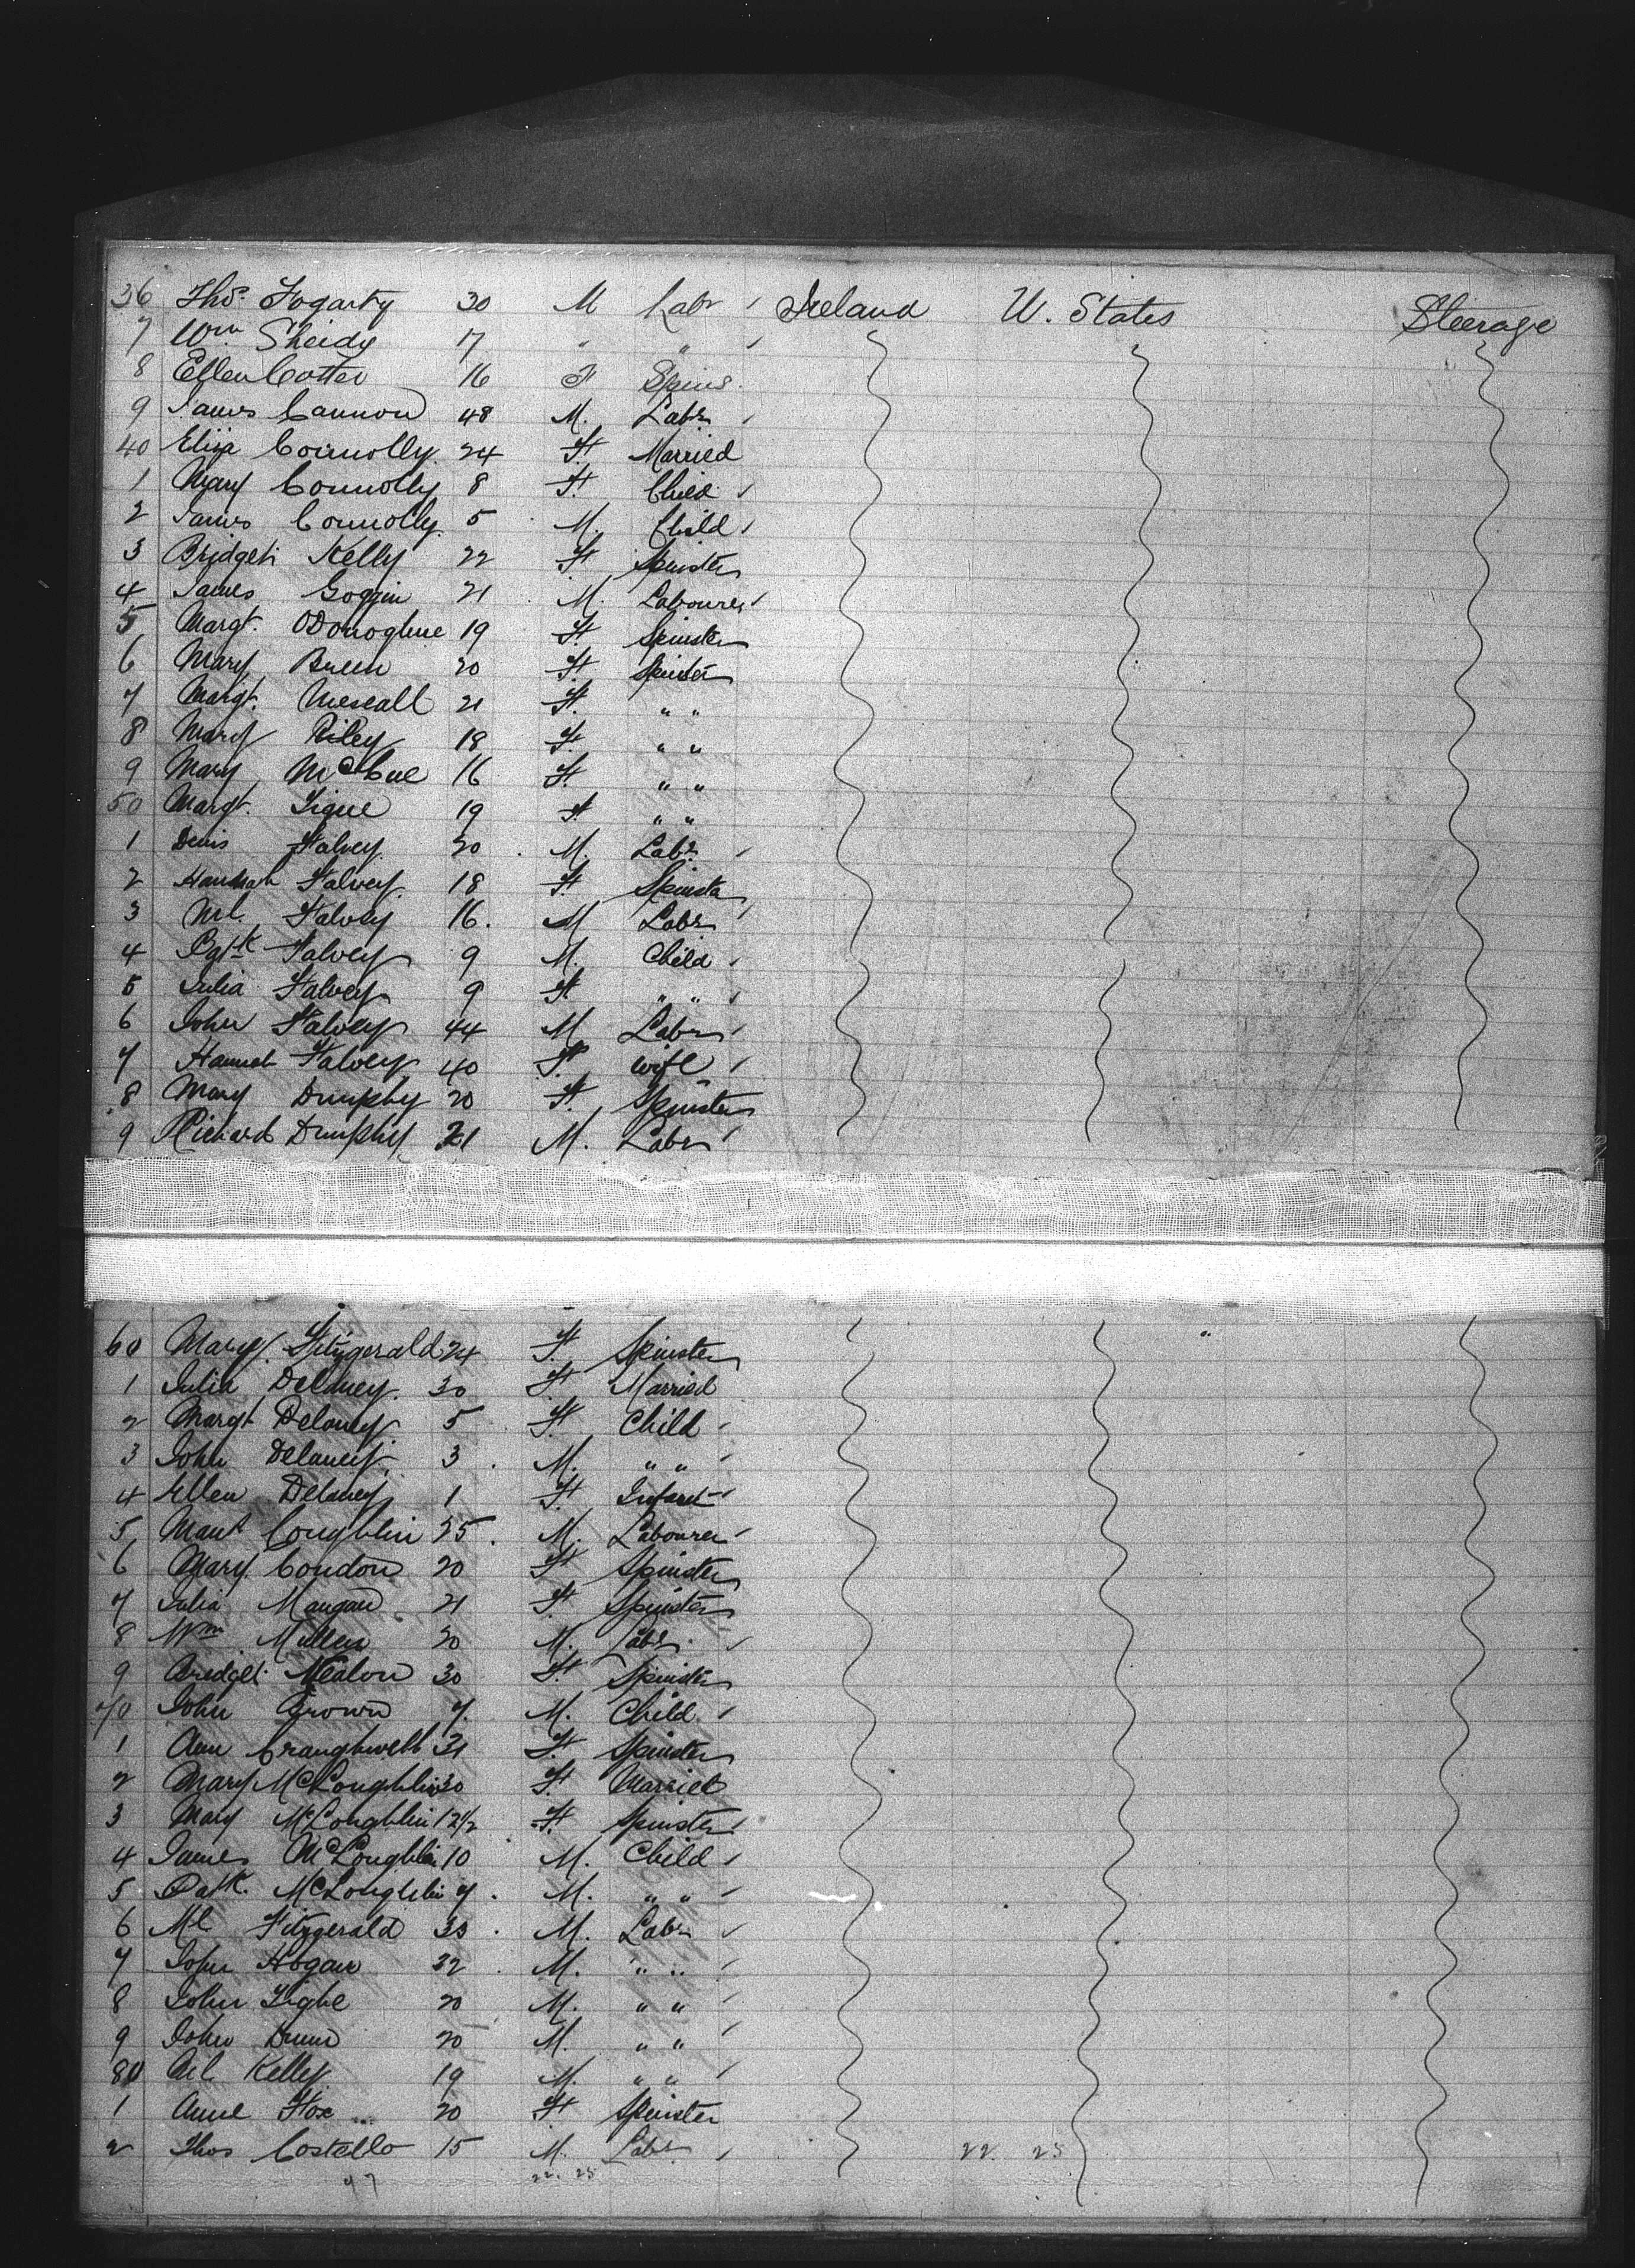 36 Thos. Fogarty 30 M Labr Ireland U. States Steerage
7 Wm Sheidy 17 " "
8 Ellen Cotter 16 F Spins.
9 James Cannon 48 M. Labr
40 Eliza Connolly 24 F Married
1 Mary Connolly 8 F. Child
2 James Connolly 5 M. Child
3 Bridget Kelly 22 F Spinster
4 James Goggin 21 M. Labourer
5 Margt. ODonoghue 19 F Spinster
6 Mary Breen 20 F. Spinster
7 Margt. Mescall 21 F. " "
8 Mary Riley 18 F. " "
9 Mary McCue 16 F. " "
50 Margt. Tigue 19 F " "
1 Denis Falvey 20 M. Labr
2 Hannah Falvey 18 F Spinster
3 Ml. Falvey 16. M Labr
4 Patk Falvey 9 M. Child
5 Julia Falvey 9 F " "
6 John Falvey 44 M Labr
7 Hannah Falvey 40 F. Wife
8 Mary Dunphy 20 F. Spinster
9 Richard Dunphy 21 M. Labr
60 Mary Fitzgerald 24 F. Spinster "
1 Julia Delaney 30 F. Married
2 Margt Delaney 5 F. Child
3 John Delaney 3 M. " "
4 Ellen Delaney 1 F. Infant
5 Coughlin 25. M. Labourer
6 Mary Condon 20 F Spinster
7 Julia Mangan 21 F. Spinster
8 Wm Mullen 20 M. Labr.
9 Bridget Nealon 30 F. Spinster
70 John Brown 7. M. Child
1 Ann Craughwell 31 F. Spinster
2 Mary McLoughlin 30 F. Married
3 Mary McLoughlin 12 1/2 F. Spinster
4 James McLoughlin 10 M. Child
5 Patk. McLoughlin 7. M. " "
6 Ml Fitzgerald 30 M. Labr
7 John Hogan 32 M. " "
8 John Tighe 20 M. " "
9 John Dunn 20 M. " "
80 Ml Kelly 19 M. " "
1 Anne Fox 20 F Spinster
2 Thos Costello 15 M. Labr. 22. 25
47 22. 25